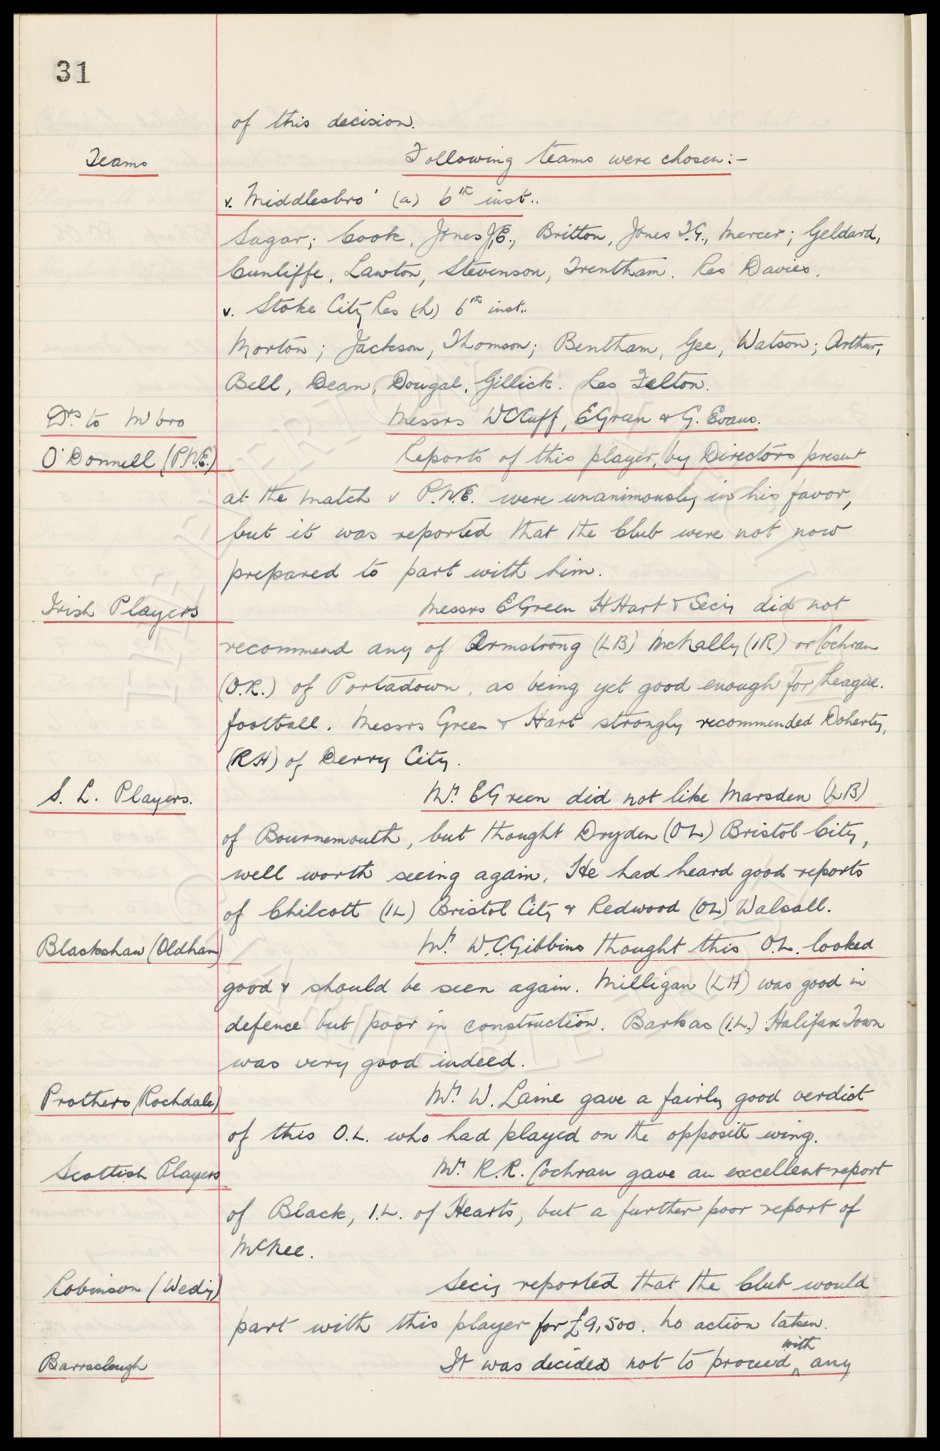 31
of this decision.
Teams Following teams were chosen:-
v. Middlesbro' (a) 6th inst..
Sagar; Cook, Jones J.E., Britton, Jones T.G., Mercer; Geldard,
Cunliffe, Lawton, Stevenson, Trentham. Res Davies.
v. Stoke City Res (h) 6th inst..
Morton; Jackson, Thomson; Bentham, Gee, Watson; Arthur,
Bell, Dean, Dougal, Gillick. Res Felton.
Drs to M'bro Messrs WCCuff, EGreen & G. Evans.
O'Donnell (P.N.E.) Reports of this player, by Directors present
at the match v P.N.E. were unanimously in his favor,
but it was reported that the Club were not now
prepared to part with him.
Irish Players Messrs EGreen HHart & Secy did not
recommend any of Armstrong (LB) McNally (IR) or Cochran
(O.R.) of Portadown, as being yet good enough for League.
football. Messrs Green & Hart strongly recommended Doherty,
(RH) of Derry City.
S. L. Players. Mr. EGreen did not like Marsden (LB)
of Bournemouth, but thought Dryden (OL) Bristol City,
well worth seeing again. He had heard good reports
of Chilcott (IL) Bristol City & Redwood (OL) Walsall.
Blackshaw (Oldham) Mr. W.C.Gibbins thought this O.L. looked
good & should be seen again. Milligan (LH) was good in
defence but poor in construction. Barkas (I.L.) Halifax Town
was very good indeed.
Prothers (Rochdale) Mr. W. Laine gave a fairly good verdict
of this O.L. who had played on the opposite wing.
Scottish Players Mr. R.R. Cochran gave an excellent report
of Black, I.L. of Hearts, but a further poor report of
McNee.
Robinson (Wedy) Secy reported that the Club would
part with this player for £9,500. No action taken.
Barraclough It was decided not to proceed with any